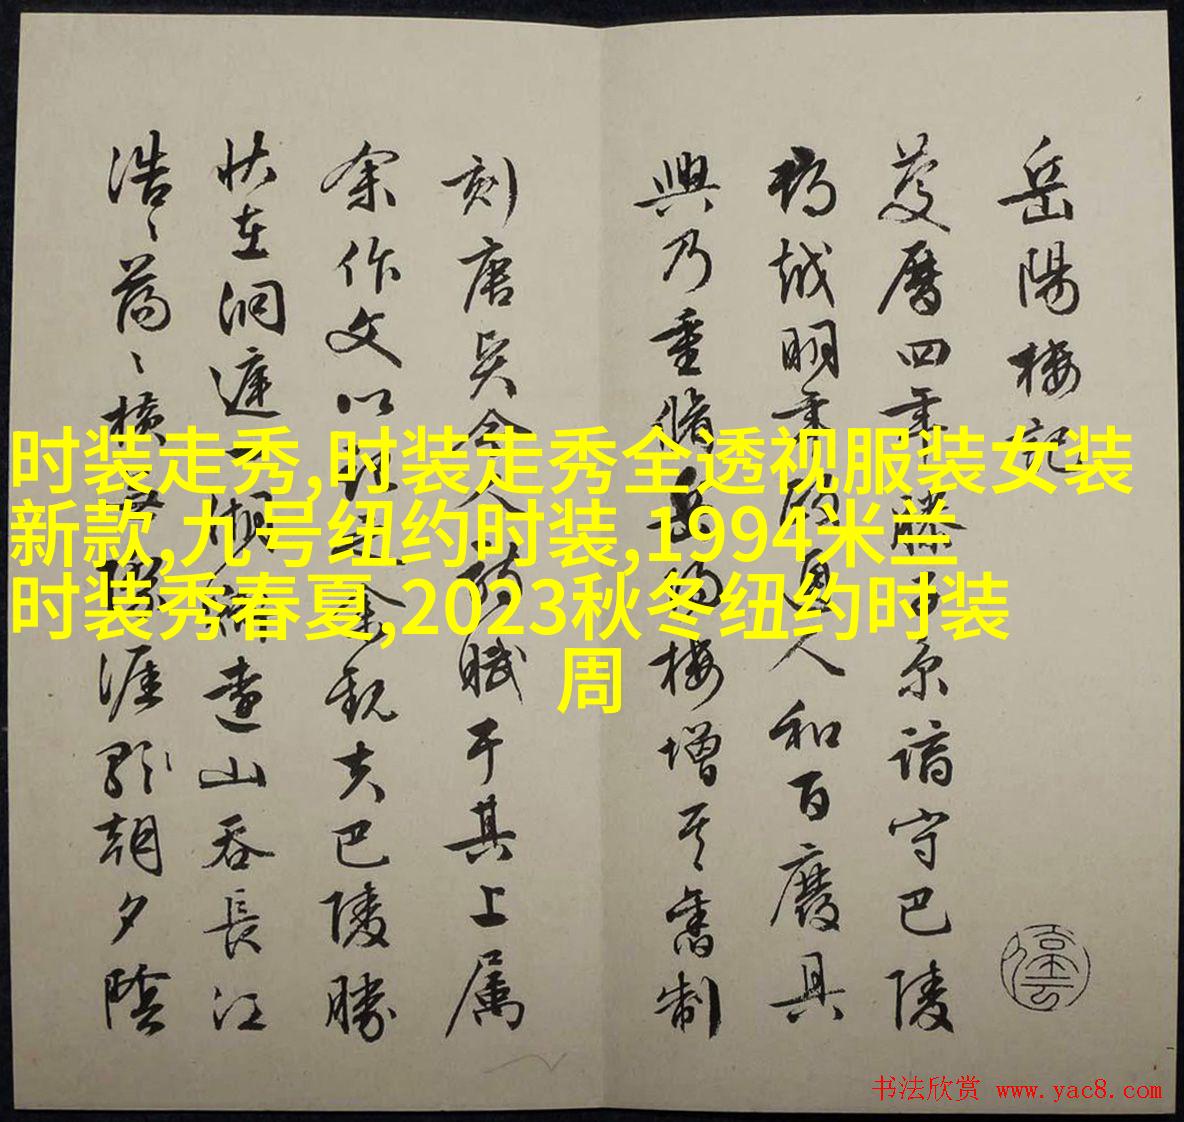 岳陽樓記
慶曆四年滕子京謫守巴陵
郡越明年政通人和百廢具
興乃重脩岳陽樓增其舊制
刻唐賢今人詩賦于其上属
余作文以記之余觀夫巴陵勝
狀在洞庭一湖銜遠山吞長江
浩〻蕩〻橫無際涯朝夕陰
时装走秀,时装走秀全透视服装女装
新款,九号纽约时装,1994米兰
时装秀春夏,2023秋冬纽约时装
周
书法欣赏 www.yac8.com